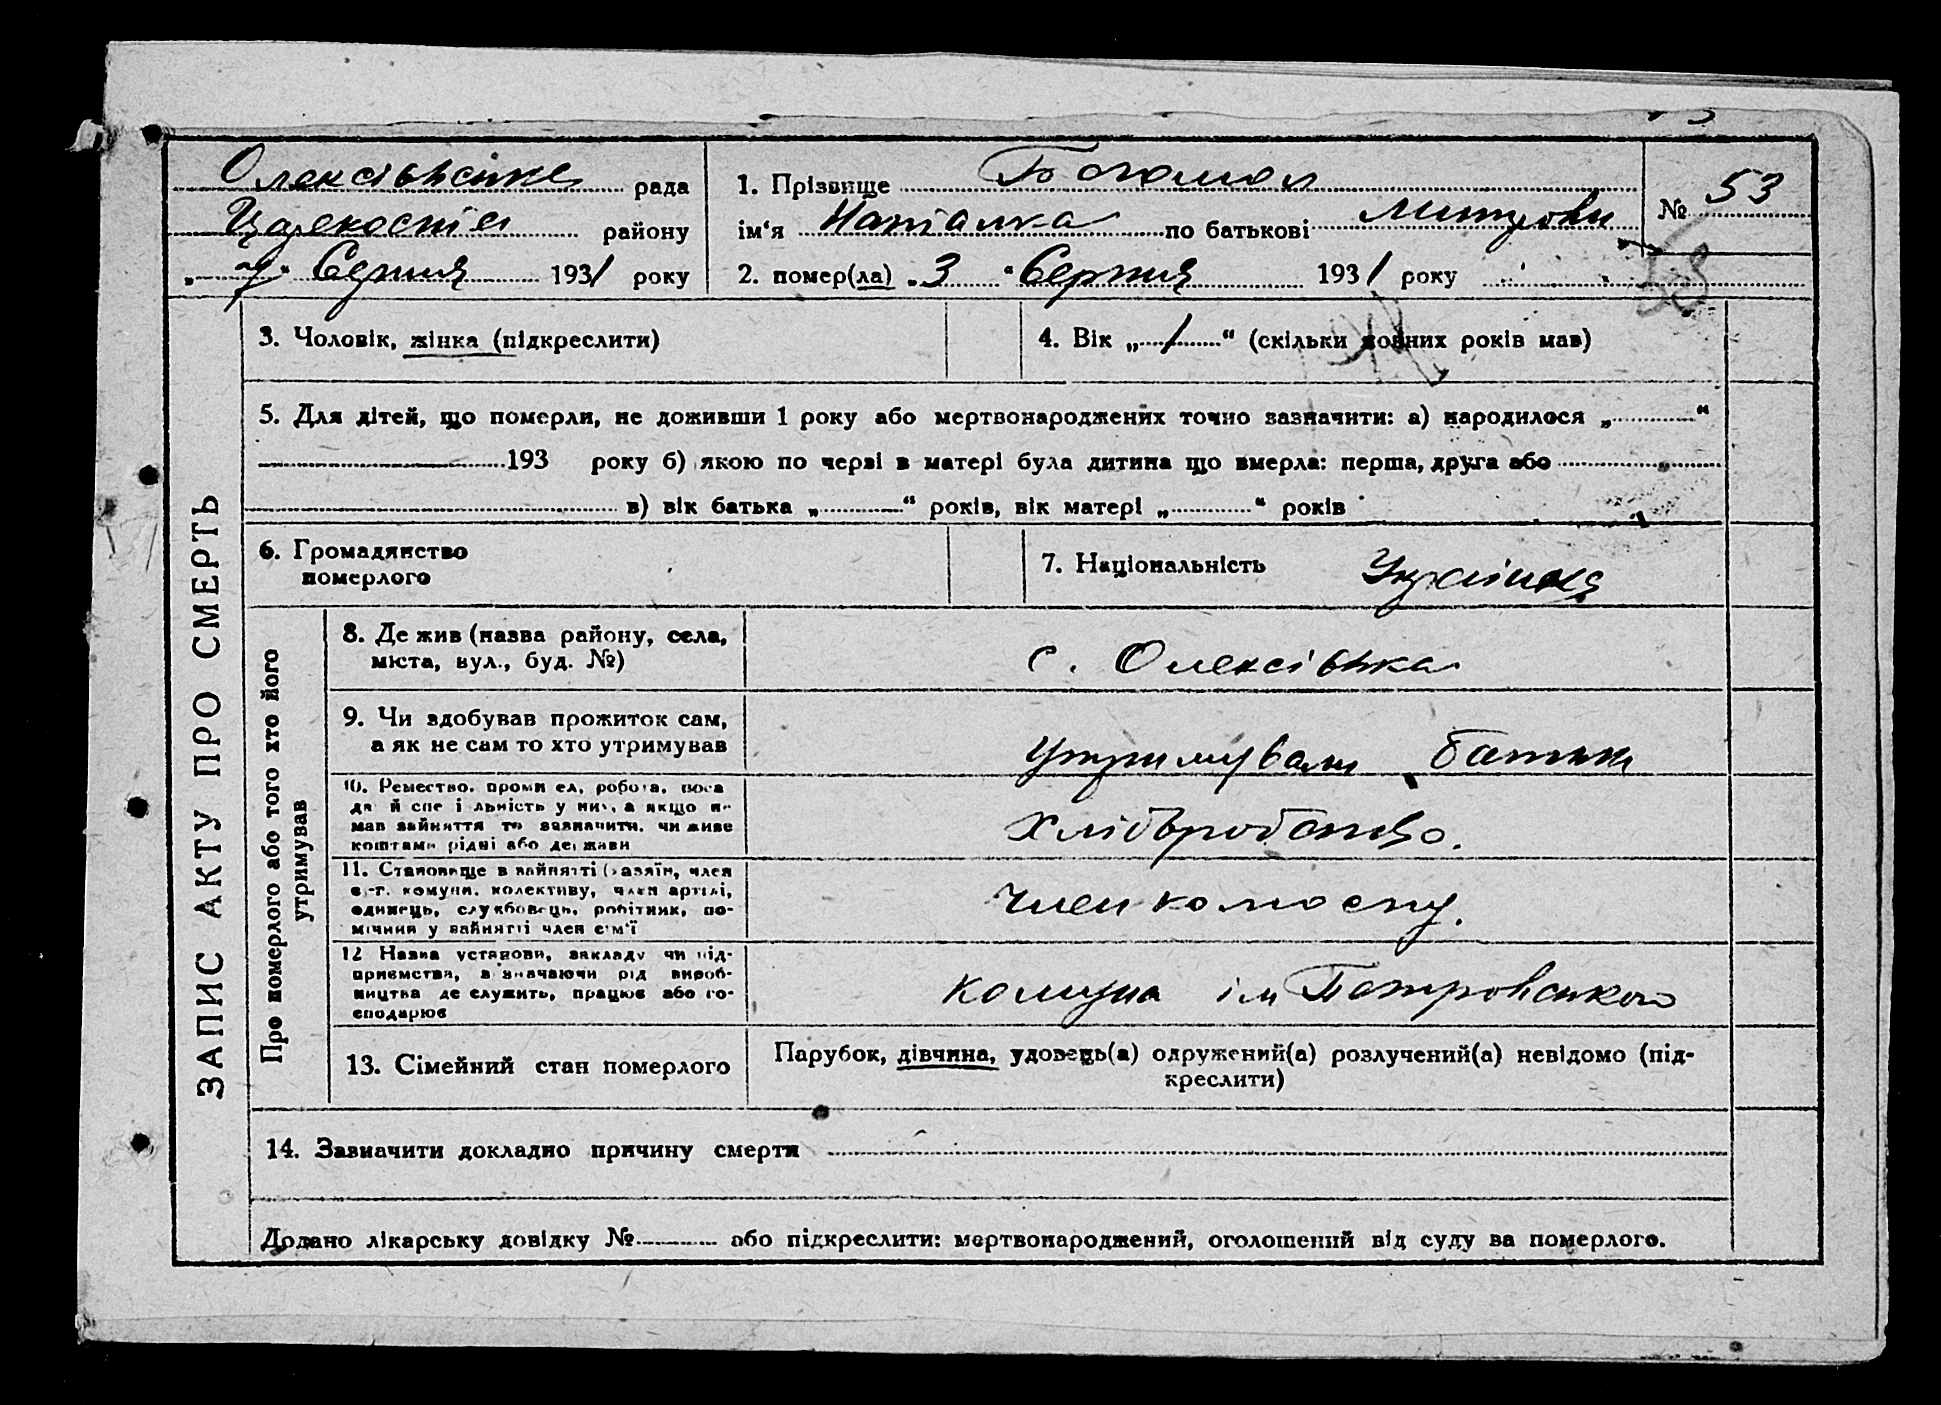 Олексівське рада
району
„ 7 “ Серпня 1931 року
1. Прізвище Богомол
ім‘я Наталка по батькові Митрови
№ 53
2. помер(ла) „ 3 “ Серпня 1931 року
58
3. Чоловік, жінка (підкреслити)
4. Вік „ 1 “ (скільки повних років мав)
5. Для дітей, що померли, не доживши 1 року або мертвонароджених точно зазначити: а) народилося „ “
193 року б) якою по черзі в матері була дитина що вмерла: перша, друга або
в) вік батька „ “ років, вік матері „ “ років
6. Громадянство
померлого
7. Національність Українка
ЗАПИС АКТУ ПРО СМЕРТЬ
Про померлого або того хто його
утримував
8. Де жив (назва району, села,
міста, вул., буд. №)
с. Олексівка
9. Чи здобував прожиток сам,
а як не сам то хто утримував
утримували батьки
10. Ремество, промисел, робота, поса
да й спеціяльність у них, а якщо не
мав зайняття то зазначити, чи живе
коштами рідні або держави
Хліборобство.
11. Становище в зайнятті (хазяїн, член
с.-г. комуни, колективу, член артілі,
одинець, службовець, робітник, по-
мічний у зайнятті член сім‘ї
Член колгоспу.
12 Назва установи, закладу чи під-
приємства, зазначаючи рід вироб-
ництва де служить, працює або го-
сподарює
комуна ім Петровського
13. Сімейний стан померлого
Парубок, дівчина, удовець(а) одружений(а) розлучений(а) невідомо (під-
креслити)
14. Зазначити докладно причину смерти
Додано лікарську довідку № або підкреслити: мертвонароджений, оголошений від суду за померлого.